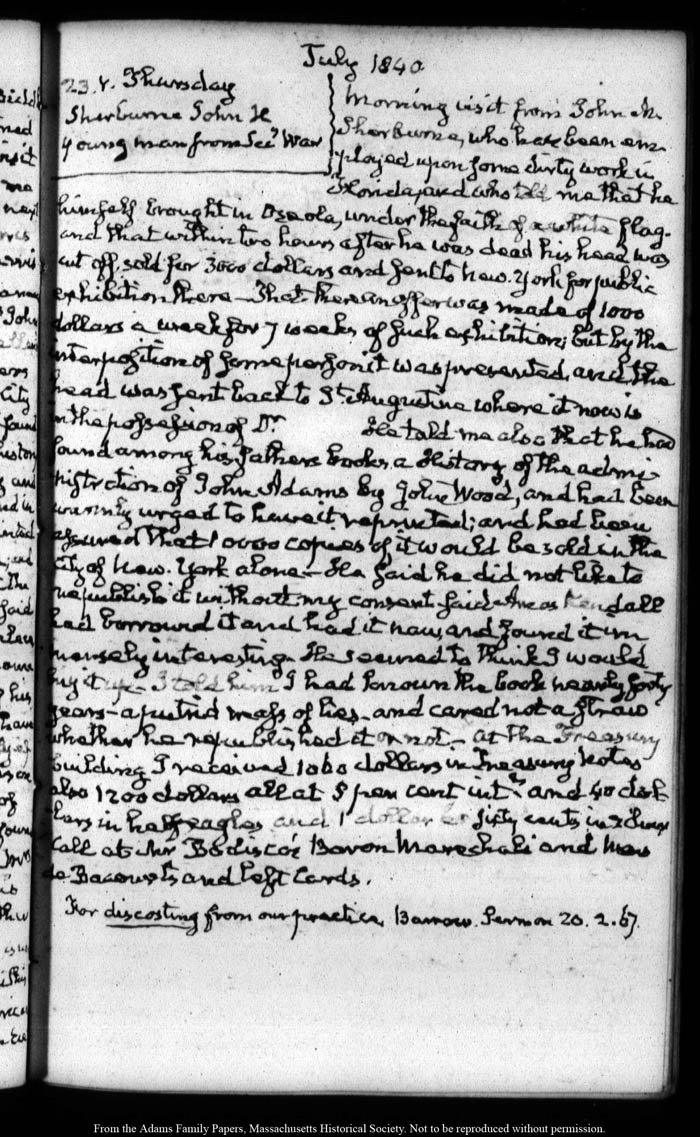 July 1840
23. V. Thursday
Sherburne John H
Young man from Secy War
Morning visit from John H.
Sherburne, who has been em-
ployed upon some dirty work in
Florida, and who told me that he
himself brought in Oseola, under the faith of a white flag.
and that within two hours after he was dead his head was
cut off, sold for 3000 dollars and sent to New-York for public
exhibition there— That there an offer was made of 1000
dollars a week for 7 weeks of such exhibition; but by the
interposition of some person it was prevented, and the
head was sent back to St. Augustine where it now is
in the possession of Dr. He told me also that he had
found among his father's books, a History of the admi-
nistration of John Adams by John Wood, and had been
warmly urged to have it reprinted; and had been
assured that 10000 copies of it would be sold in the
City of New-York alone— He said he did not like to
republish it without my consent said Amos Kendall
had borrowed it and had it now, and found it im-
mensely interesting— He seemed to think I would
buy it up— I told him I had known the book nearly forty
years— a putrid mass of lies— and cared not a straw
whether he republished it or not.— At the Treasury
building I received 1060 dollars in Treasury Notes
also 1200 dollars all at 5 per cent intt. and 40 dol-
lars in half eagles and 1 dollar sixty cents in silver
Call at Mr Bodisco's Baron Mareschal's and Mr
de Bacourt's and left Cards.
For discosting from our practice, Barrow. Sermon 20. 2. 67.
From the Adams Family Papers, Massachusetts Historical Society. Not to be reproduced without permission.